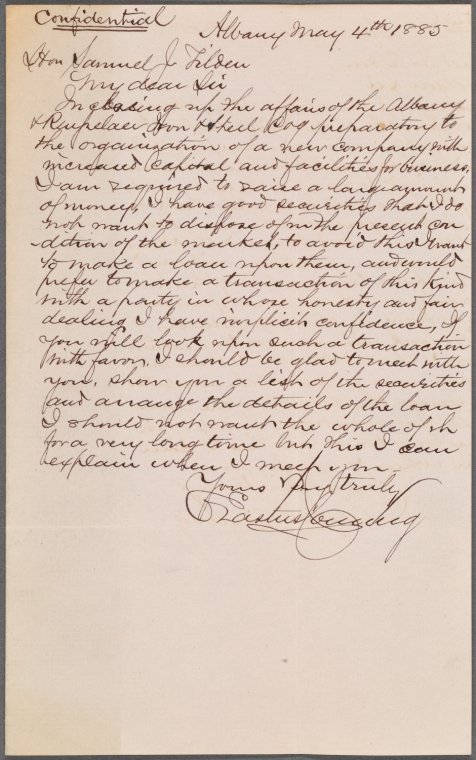 Confidential
Albany May 4th 1885
Hon Samuel J Tilden
My dear Sir
In closing up the affairs of the Albany
& Renpelaer Iron & Steel Coy preparatory to
the organization of a new company with
increased capital and facilities for business,
I am required to raise a large amount
of money, I have good securities that I do
not want to dispose of in the present con
dition of the market, to avoid this I want
to make a loan upon them, and would
prefer to make a transaction of this kind
with a party in whose honesty and fair
dealing I have implicit confidence, If
you will look upon such a transaction
with favor, I should be glad to meet with
you, show you a list of the securities
and arrange the details of the loan
I should not want the whole of it
for a very long time but this I can
explain when I meet you
Yours very truly
Erastus Corning